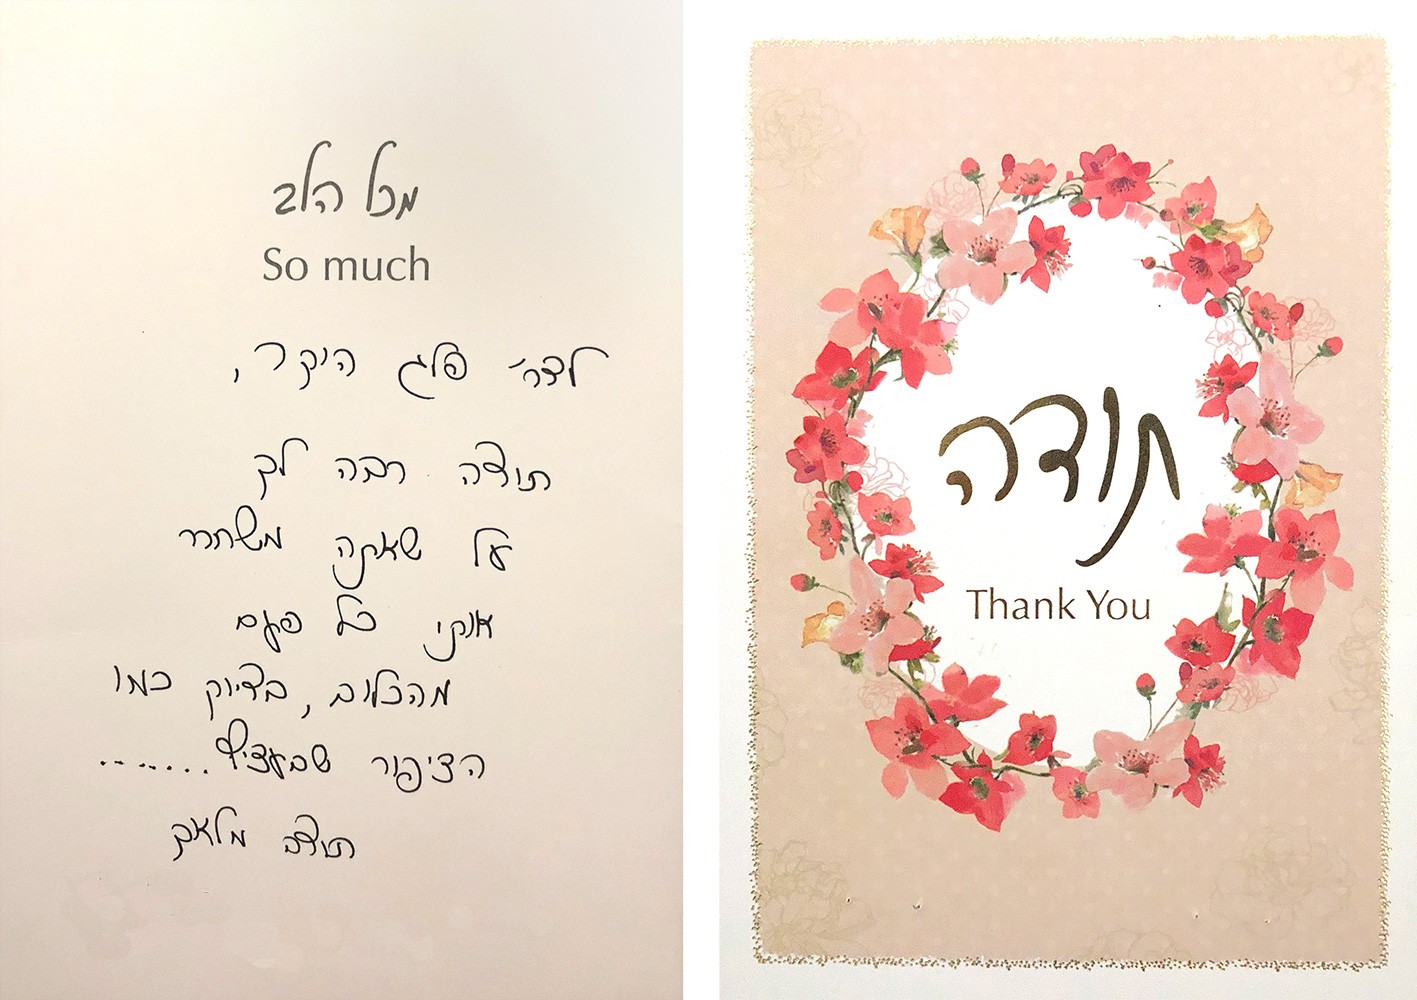 מכל הלב
So much
לדר' פלג היקר,
תודה רבה לך
על שאתה משחרר
אותי כל פעם
מהכלוב, בדיוק כמו
הציפור שבעציץ.......
תודה מלאך
תודה
Thank You